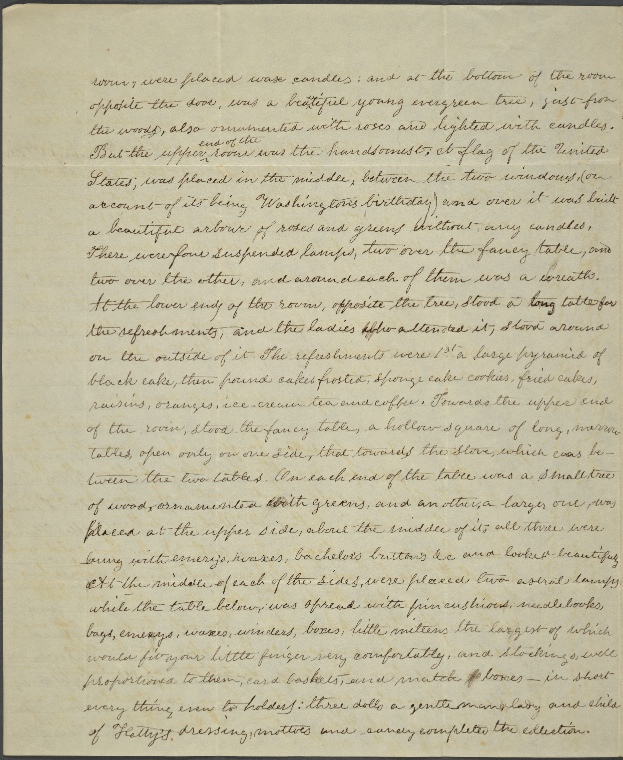 room, were placed wax candles: and at the bottom of the room
opposite the door, was a beautiful young evergreen tree, just from
the woods, also ornamented with roses and lighted with candles.
But the upper end of the room was the handsomest. A flag of the United
States, was placed in the middle, between the two windows, (on
account of its being Washington's birthday) and over it was built
a beautiful arbour of roses and greens without any candles.
There were four suspended lamps, two over the fancy table, and
two over the other, and around each of them was a wreath.
At the lower end of the room, opposite the tree, stood a long table for
the refreshments, and the ladies who attended it, stood around
on the outside of it. The refreshments were 1st a large pyramid of
black cake, then pound cakes frosted, sponge cake cookies, fried cakes,
raisins, oranges, ice-cream tea and coffee. Towards the upper end
of the room, stood the fancy table, a hollow square of long, narrow
tables, open only on one side, that towards the stove, which was be-
tween the two tables. On each end of the table was a small tree
of wood, ornamented with greens, and another, a larger one, was
placed at the upper side, about the middle of it, all three were
hung with emerys, waxes, bachelors buttons &c and looked beautifully
At the middle of each of the sides, were placed two astral lamps,
while the table below, was spread with pincushions, needlebooks,
bags, emerys, waxes, winders, boxes, little mittens the largest of which
would fit your little finger very comfortably, and stockings, well
proportioned to them, card baskets, and match boxes — in short
every thing even to holders: three dolls a gentleman, lady and child
of Hatty's dressing, mottoes and candy completed the collection.